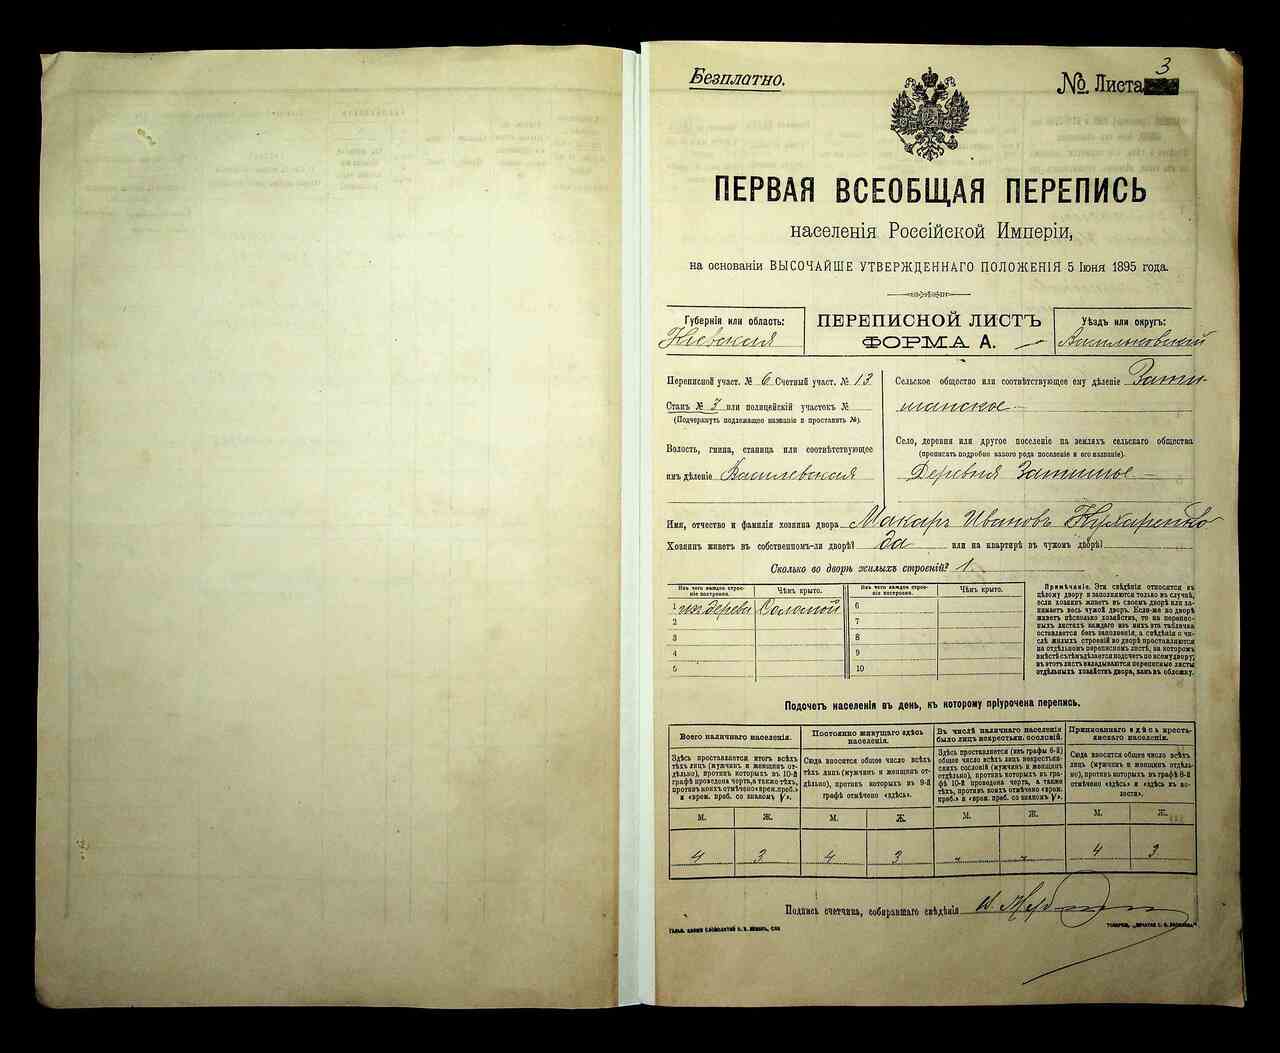 Безплатно.
№ Листа 3
ПЕРВАЯ ВСЕОБЩАЯ ПЕРЕПИСЬ
населенія Россійской Имперіи,
на основаніи ВЫСОЧАЙШЕ УТВЕРЖДЕННАГО ПОЛОЖЕНІЯ 5 Іюня 1895 года.
Губернія или область:
Кіевская
ПЕРЕПИСНОЙ ЛИСТЪ
ФОРМА А.
Уѣздъ или округъ:
Васильковскій
Переписной участ. № 6 Счетный участ. № 13
Станъ № 3 или полицейскій участокъ №
(Подчеркнуть подлежащее названіе и проставить №).
Волость, гмина, станица или соотвѣтствующее
имъ дѣленіе Василевская
Сельское общество или соотвѣтствующее ему дѣленіе Зати-
шанское
Село, деревня или другое поселеніе на земляхъ сельскаго общества
(прописать подробно какого рода поселеніе и его названіе).
Деревня Затишье
Имя, отчество и фамилія хозяина двора Макаръ Ивановъ Кухаренко
Хозяинъ живетъ въ собственномъ-ли дворѣ? да или на квартирѣ въ чужомъ дворѣ?
Сколько во дворѣ жилыхъ строеній? 1
Изъ чего каждое строе-
ніе построено.
Чѣмъ крыто.
Изъ чего каждое строе-
ніе построено.
Чѣмъ крыто.
1 изъ дерева Соломой
2
3
4
5
6
7
8
9
10
Примѣчаніе. Эти свѣдѣнія относятся къ
цѣлому двору и заполняются только въ случаѣ,
если хозяинъ живетъ въ своемъ дворѣ или за-
нимаетъ весь чужой дворъ. Если-же во дворѣ
живетъ нѣсколько хозяйствъ, то на перепис-
ныхъ листахъ каждаго изъ нихъ эта табличка
оставляется безъ заполненія, а свѣдѣнія о чи-
слѣ жилыхъ строеній во дворѣ проставляются
на отдѣльномъ переписномъ листѣ, на которомъ
вмѣстѣ съ тѣмъ дѣлается подсчетъ по всему двору;
въ этотъ листъ вкладываются переписные листы
отдѣльныхъ хозяйствъ двора, какъ въ обложку.
Подсчетъ населенія въ день, къ которому пріурочена перепись.
Всего наличнаго населенія.
Здѣсь проставляется итогъ всѣхъ
тѣхъ лицъ (мужчинъ и женщинъ от-
дѣльно), противъ которыхъ въ 10-й
графѣ проведена черта, а также тѣхъ,
противъ коихъ отмѣчено «врем. преб.»
и «врем. преб. со знакомъ V».
Постоянно живущаго здѣсь
населенія.
Сюда вносится общее число всѣхъ
тѣхъ лицъ (мужчинъ и женщинъ от-
дѣльно), противъ которыхъ въ 9-й
графѣ отмѣчено «здѣсь».
Въ числѣ наличнаго населенія
было лицъ некрестьян. сословій.
Здѣсь проставляется (изъ графы 6-й)
общее число всѣхъ лицъ некрестьян-
скихъ сословій (мужчинъ и женщинъ
отдѣльно), противъ которыхъ въ гра-
фѣ 10-й проведена черта, а также
тѣхъ, противъ коихъ отмѣчено «врем.
преб.» и «врем. преб. со знакомъ V».
Приписаннаго здѣсь кресть-
янскаго населенія.
Сюда вносится общее число всѣхъ
лицъ (мужчинъ и женщинъ отдѣль-
но), противъ которыхъ въ графѣ 8-й
отмѣчено «здѣсь» и «здѣсь въ во-
лости».
М. Ж. М. Ж. М. Ж. М. Ж.
4 3 4 3 „ „ 4 3
Подпись счетчика, собиравшаго свѣдѣнія